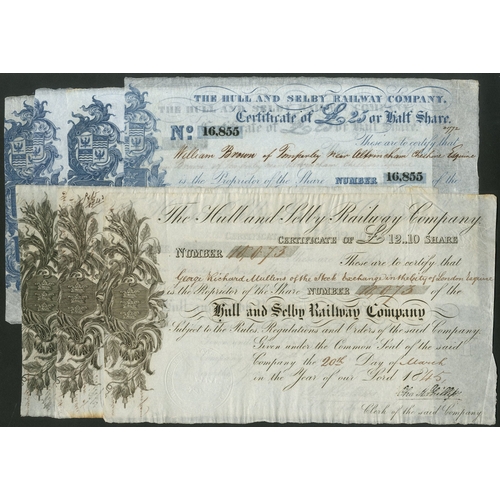 THE HULL AND SELBY RAILWAY COMPANY,
Certificate of £25 or Half Share.
No 16,855
These are to certify that
William Brown of Timperley near Altrincham Cheshire Esquire
is the Proprietor of the Share NUMBER 16,855 of the
The Hull and Selby Railway Company.
CERTIFICATE OF £12..10 SHARE
NUMBER
These are to certify that
George Richard Mullens of the Stock Exchange in the City of London Esquire
is the Proprietor of the Share NUMBER of the
Hull and Selby Railway Company
Subject to the Rules Regulations and Orders of the said Company.
Given under the Common Seal of the said
Company the 20th Day of March
in the Year of our Lord 1845
Clerk of the said Company